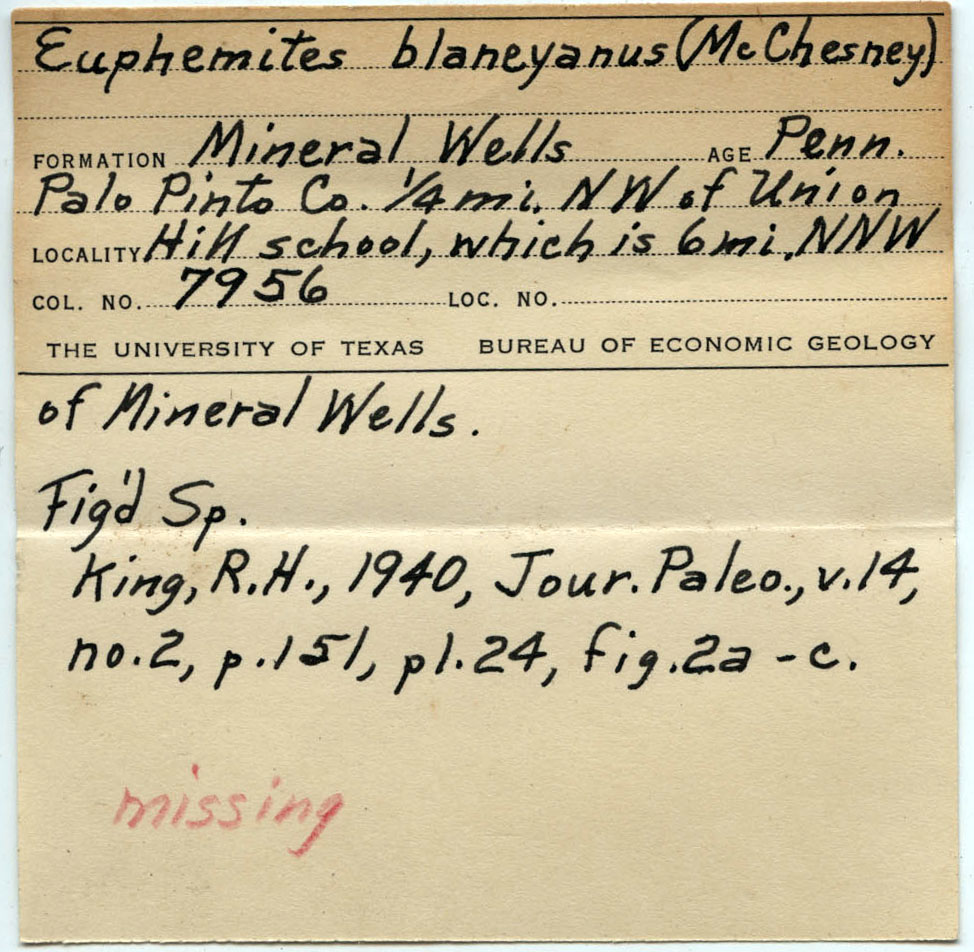 Euphemites blaneyanus (McChesney)
FORMATION Mineral Wells AGE Penn.
Palo Pinto Co. 1/4 mi. NW of Union
LOCALITY Hill school, which is 6 mi. NNW
COL. NO. 7956 LOC. NO.
THE UNIVERSITY OF TEXAS BUREAU OF ECONOMIC GEOLOGY
of Mineral Wells.
Fig'd Sp.
King, R.H., 1940, Jour. Paleo., v.14,
no.2, p.151, pl.24, fig.2a-c.
missing